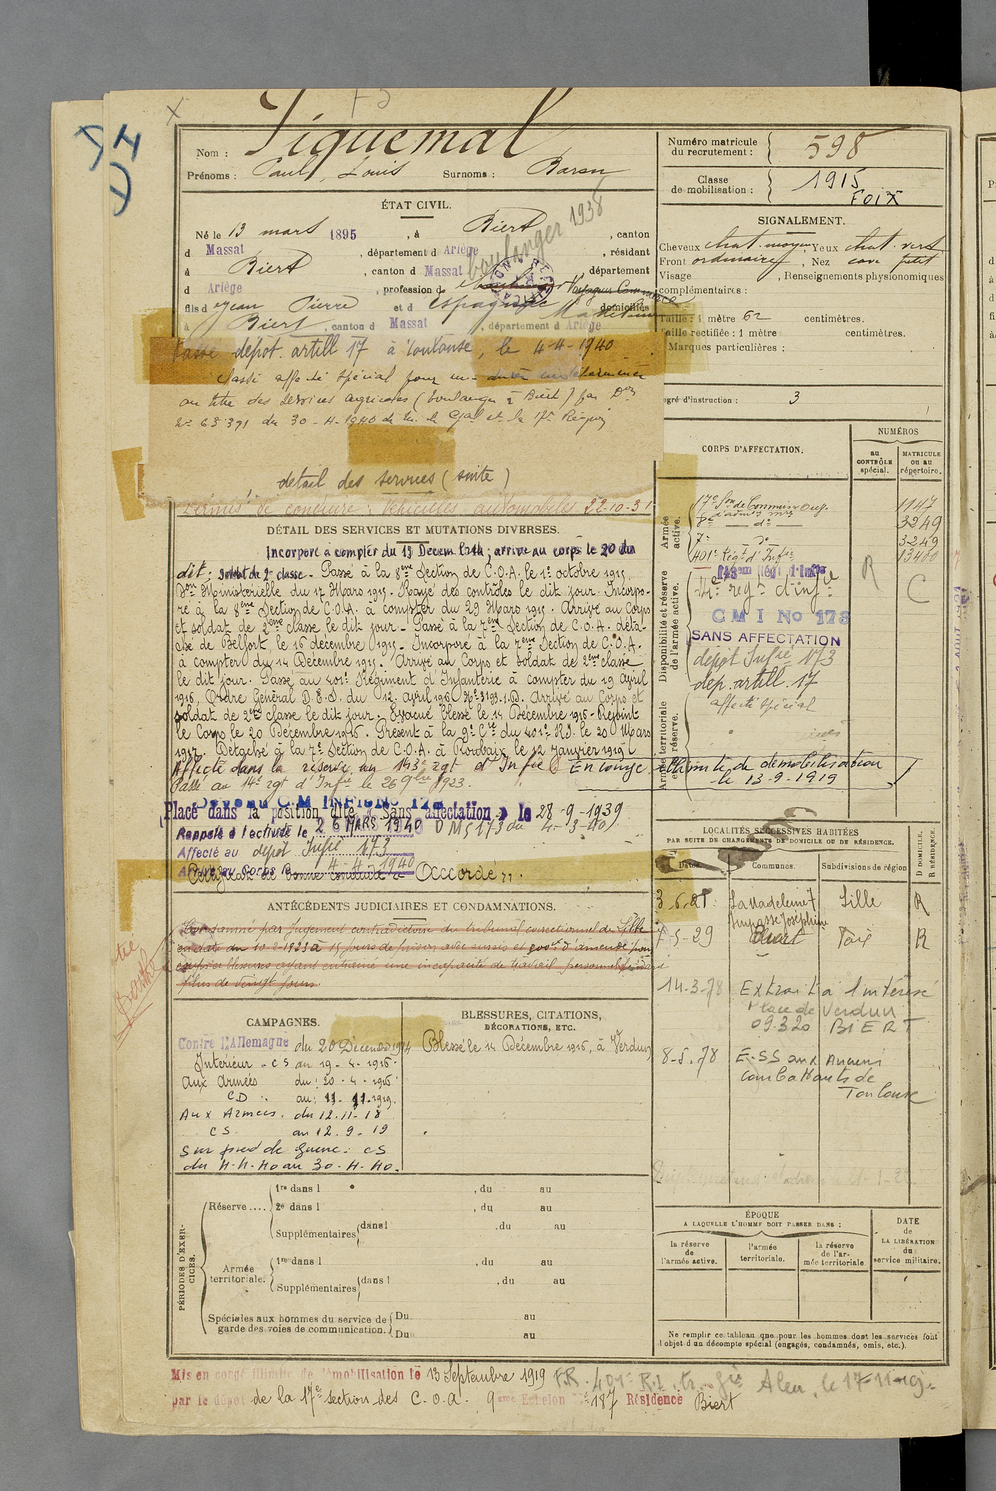 Nom : Piquemal
Prénoms : Paul, Louis Surnoms : Baron
Numéro matricule
du recrutement : 598
Classe
de mobilisation : 1915
FOIX
ÉTAT CIVIL.
Né le 13 mars 1895, à Biert, canton
d Massat, département d Ariège, résidant
à Biert, canton d Massat, département
d Ariège, profession d
boulanger 1938
fils d Jean Pierre et d domiciliés
à Biert, canton d Massat, département d Ariège
SIGNALEMENT.
Cheveux chat. moyen, Yeux chat. vert
Front ordinaire, Nez
Visage , Renseignements physionomiques
complémentaires :
Taille : 1 mètre 62 centimètres.
Taille rectifiée : 1 mètre centimètres.
Marques particulières :
Degré d'instruction : 3
Passé dépot. artill 17 à Toulouse, le 4-4-1940
Classé affecté spécial pour une durée indéterminée
au titre des services agricoles (boulanger à Biert) par Don
n° 63391 du 30-4-1940 de M. le Gal et la 17e Région
détail des services (suite)
Permis de conduire : Véhicules automobiles 22-10-31
DÉTAIL DES SERVICES ET MUTATIONS DIVERSES.
Incorporé à compter du 19 Décem. 1914 ; arrivé au corps le 20 du
dit : Soldat de 2e classe - Passé à la 8ème Section de C.O.A. le 1er octobre 1915
Don Ministérielle du 17 Mars 1915. Rayé des contrôles le dit jour. Incorpo-
ré à la 8ème Section de C.O.A. à compter du 29 Mars 1915. Arrivé au Corps
et soldat de 2ème classe le dit jour - Passé à la 7ème Section de C.O.A. déta-
ché de Belfort, le 16 décembre 1915 - Incorporé à la 7ème Section de C.O.A.
à compter du 14 Décembre 1915. Arrivé au Corps et soldat de 2ème classe
le dit jour. Passé au 401e Régiment d'Infanterie à compter du 19 Avril
1916, Ordre Général D.E.S. du 12 avril 1916 Arrivé au Corps et
soldat de 2me classe le dit jour. Evacué blessé le 14 Décembre 1916 - Rejoint
le Corps le 20 Décembre 1916. Présent à la 9e Cie du 401e R.I. le 20 Mars
1917. Détaché à la 7e Section de C.O.A. à Roubaix le 12 Janvier 1919
En congé illimité de démobilisation
le 13-9-1919
Affecté dans la réserve au 143e rgt d'Infie
Passé au 14e rgt d'Infie le 26 9bre 1923.
Devenu C.M INFIE No 173
Placé dans la position dite "Sans affectation" le 28-9-1939
Rappelé à l'activité le 26 MARS 1940 D M 5173 du 4-3-40
Affecté au dépot Infie 173
Arrivé au Corps le 4-4-1940
Certificat de bonne conduite "Accordé".
CORPS D'AFFECTATION.
NUMÉROS
au
CONTRÔLE
spécial.
MATRICULE
ou au
répertoire.
Armée
active.
17e Son de Commis et ouv. 1947
d'admis mre
8e do 3249
7e do 3249
401e Régt d'Infie 13400
R
C
Disponibilité et réserve
de l'armée active.
143em Régt d'Infie
14e regt d'infie
C M I No 173
SANS AFFECTATION
dépôt Infie 173
dep. artill. 17
affecté spécial
Armée territoriale
et réserve.
LOCALITÉS SUCCESSIVES HABITÉES
PAR SUITE DE CHANGEMENTS DE DOMICILE OU DE RÉSIDENCE.
Dates. Communes. Subdivisions de région D DOMICILE. R RÉSIDENCE.
3-6-21 La Madeleine Lille R
Impasse Joséphine
7-5-29 Biert Foix R
14-3-78 Extrait à l'intéressé
Place de Verdun
09.320 BIERT
8-5.78 E-SS aux Anciens
combattants de
Toulouse
ANTÉCÉDENTS JUDICIAIRES ET CONDAMNATIONS.
Condamné par jugement contradictoire du tribunal correctionnel de Lille
en date du 10-2-1923 à 15 jours de prison avec sursis et 200f d'amende pour
coups et blessures ayant entraîné une incapacité de travail personnel pendant
plus de vingt jours
CAMPAGNES.
Contre l'Allemagne du 20 Décembre 1914
Intérieur - CS au 19-4-1916
Aux Armées du : 20-4-1916
CD : au : 11-11-1919.
Aux Armées. du 12.11-18
CS au 12.9-19
Sur pied de guerre : CS
du 4-4-40 au 30-4-40.
BLESSURES, CITATIONS,
DÉCORATIONS, ETC.
Blessé le 14 Décembre 1916, à Verdun
PÉRIODES D'EXER-
CICES.
Réserve.... 1re dans l , du au
2e dans l , du au
Supplémentaires dans l , du au
Armée
territoriale. 1re dans l , du au
Supplémentaires dans l , du au
Spéciales aux hommes du service de
garde des voies de communication. Du au
Du au
ÉPOQUE
A LAQUELLE L'HOMME DOIT PASSER DANS :
la réserve
de l'armée active.
l'armée
territoriale.
la réserve
de l'ar-
mée territoriale.
DATE
de
LA LIBÉRATION
du
service militaire.
Ne remplir ce tableau que pour les hommes dont les services font
l'objet d'un décompte spécial (engagés, condamnés, omis, etc.).
Mis en congé illimité de démobilisation le 13 Septembre 1919 F.R. 401e R.I. le 17-11-19.
par le dépôt de la 17e section des C.O.A. 9ème Echelon no 187 Résidence Biert